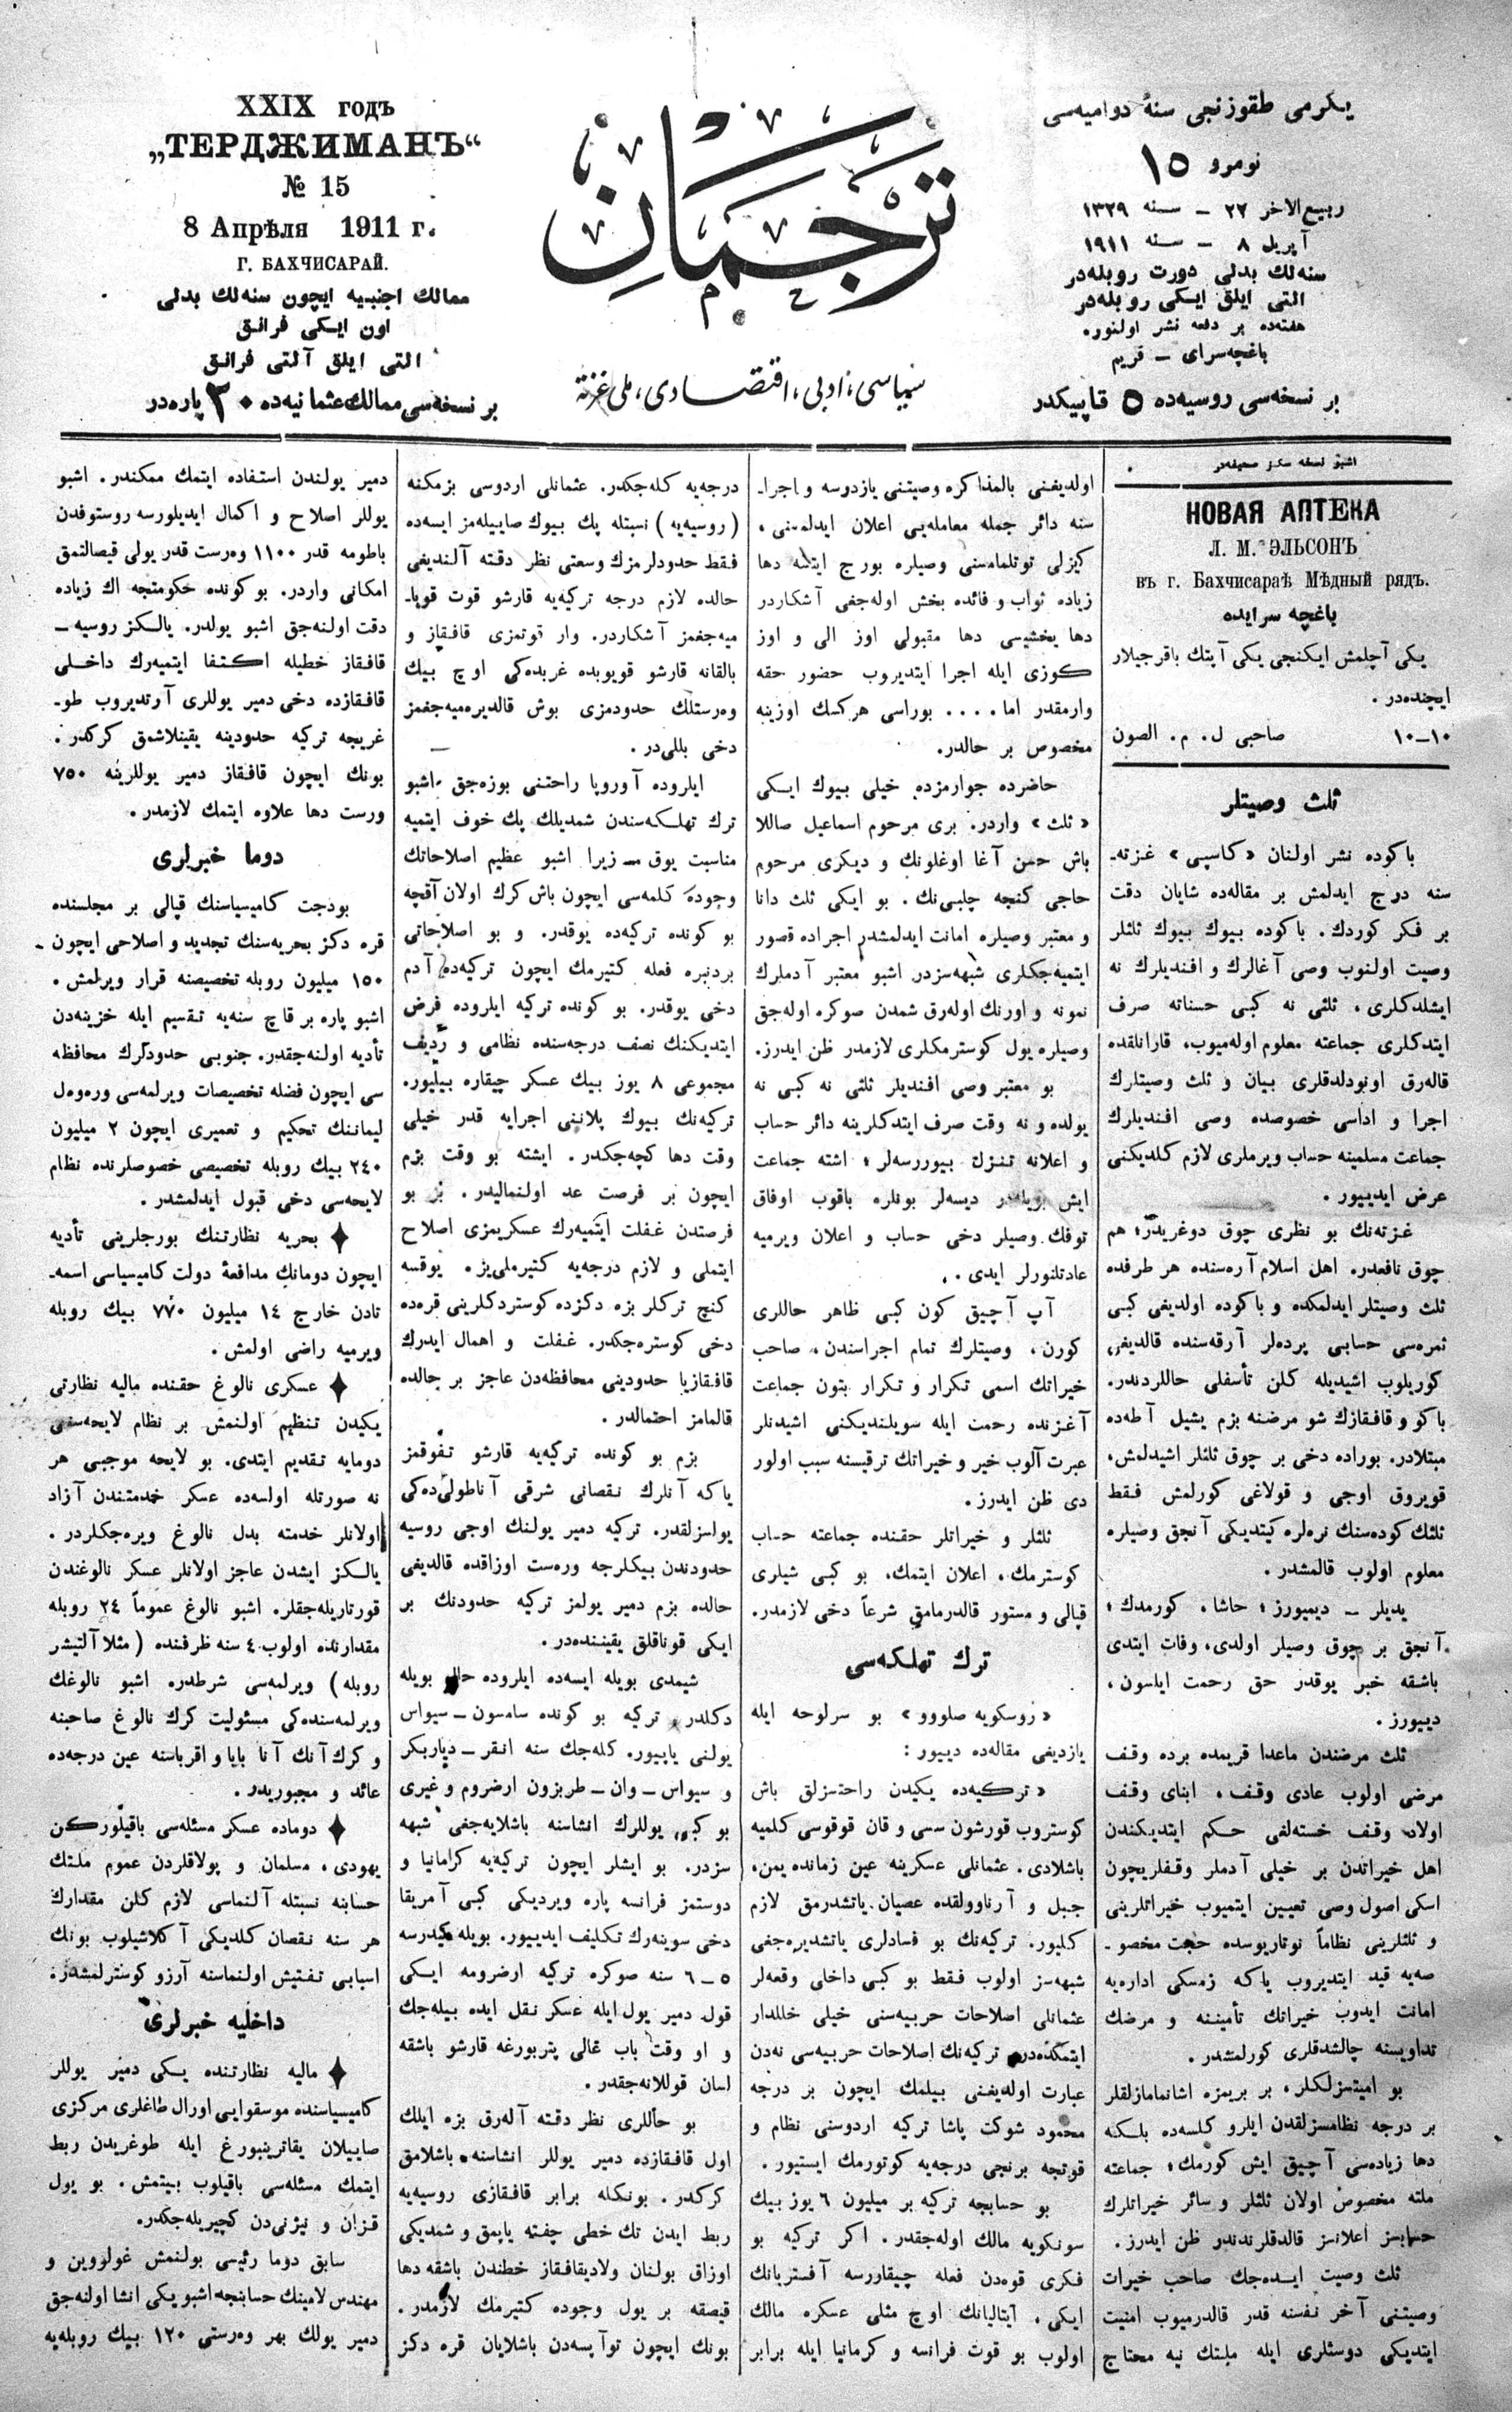 XXIX годъ
„ТЕРДЖИМАНЪ“
№ 15
8 Апрѣля 1911 г.
Г. БАХЧИСАРАЙ.
ممالك اجنبیه ایچون سنه‌لك بدلی
اون ایکی فرانق
التی ایلق آلتی فرانق
بر نسخه‌سی ممالك عثمانیه‌ده ۳۰ پاره‌در
ترجمان
سیاسی، ادبی، اقتصادی، ملی غزته
یکرمی طقوزنجی سنهٔ دوامیه‌سی
نومرو ۱۵
ربیع‌الاخر ۲۲ — سنه ۱۳۲۹
آپریل ۸ — سنه ۱۹۱۱
سنه‌لك بدلی دورت روبله‌در
التی ایلق ایکی روبله‌در
هفته‌ده بر دفعه نشر اولنور.
باغچه‌سرای — قریم
بر نسخه‌سی روسیه‌ده ۵ قاپیکدر
اشبو نسخه سکز صحیفه‌در
НОВАЯ АПТЕКА
Л. М. ЭЛЬСОНЪ
въ г. Бахчисараѣ Мѣдный рядъ.
باغچه سرایده
یکی آچلمش ایکنجی یکی آپتك باقرجیلار
ایچنده‌در.
۱۰—۱۰ صاحبی ل. م. الصون
ثلث وصیتلر
باکوده نشر اولنان «کاسپی» غزته‌ـ
سنه درج ایدلمش بر مقاله‌ده شایان دقت
بر فکر کوردك. باکوده بیوك بیوك ثلثلر
وصیت اولنوب وصی آغالرك و افندیلرك نه
ایشلدکلری، ثلثی نه کبی حسناته صرف
ایتدکلری جماعته معلوم اوله‌میوب، قارانلقده
قاله‌رق اونودلدقلری بیان و ثلث وصیتلرك
اجرا و اداسی خصوصده وصی افندیلرك
جماعت مسلمینه حساب ویرملری لازم کلدیکنی
عرض ایدییور.
غزته‌نك بو نظری چوق دوغریدر؛ هم
چوق نافعدر. اهل اسلام آره‌سنده هر طرفده
ثلث وصیتلر ایدلمکده و باکوده اولدیغی کبی
ثمره‌سی حسابی پرده‌لر آرقه‌سنده قالدیغی
کوریلوب اشیدیله کلن تأسفلی حاللردندر.
باکو و قافقازك شو مرضنه بزم یشیل آطه‌ده
مبتلادر. بوراده دخی بر چوق ثلثلر اشیدلمش،
قویروق اوجی و قولاغی کورلمش فقط
ثلثك کوده‌سنك نره‌لره کیتدیکی آنجق وصیلره
معلوم اولوب قالمشدر.
یدیلر — دیمیورز؛ حاشا، کورمدك؛
آنجق بر چوق وصیلر اولدی، وفات ایتدی
باشقه خبر یوقدر حق رحمت ایلسون،
دییورز.
ثلث مرضندن ماعدا قریمده برده وقف
مرضی اولوب عادی وقف، ابنای وقف
اولاد وقف خسته‌لغی حکم ایتدیکندن
اهل خیراتدن بر خیلی آدملر وقفلریچون
اسکی اصول وصی تعیین ایتمیوب خیراتلرینی
و ثلثلرینی نظاماً نوتاریوسده حجت مخصوـ
صه‌یه قید ایتدیروب یاکه زمسکی اداره‌یه
امانت ایدوب خیراتك تأمیننه و مرضك
تداویسنه چالشدقلری کورلمشدر.
بو امیتسزلکلر، بر بریمزه اشانمامازلقلر
بر درجه نظامسزلقدن ایلرو کلسه‌ده بلکه
دها زیاده‌سی آچیق ایش کورمك؛ جماعته
ملته مخصوص اولان ثلثلر و سائر خیراتلرك
حسابسز اعلانسز قالدقلرندندر ظن ایدرز.
ثلث وصیت ایده‌جك صاحب خیرات
وصیتنی آخر نفسنه قدر قالدرمیوب امنیت
ایتدیکی دوستلری ایله ملتك نیه محتاج
اولدیغنی بالمذاکره وصیتنی یازدوسه و اجراـ
سنه دائر جمله معامله‌یی اعلان ایدلمسنی،
کیزلی توتلمامسنی وصیلره بورج ایتسه دها
زیاده ثواب و فائده بخش اوله‌جغی آشکاردر
دها یخشیسی دها مقبولی اوز الی و اوز
کوزی ایله اجرا ایتدیروب حضور حقه
وارمقدر اما.... بوراسی هرکسك اوزینه
مخصوص بر حالدر.
حاضرده جوارمزده خیلی بیوك ایکی
«ثلث» واردر. بری مرحوم اسماعیل صاللا
باش حسن آغا اوغلونك و دیکری مرحوم
حاجی کنجه چلبی‌نك. بو ایکی ثلث دانا
و معتبر وصیلره امانت ایدلمشدر اجراده قصور
ایتمیه‌جکلری شبهه‌سزدر. اشبو معتبر آدملرك
نمونه و اورنك اوله‌رق شمدن صوکره اوله‌جق
وصیلره یول کوسترمکلری لازمدر ظن ایدرز.
بو معتبر وصی افندیلر ثلثی نه کبی نه
یولده و نه وقت صرف ایتدکلرینه دائر حساب
و اعلانه تنزل بیوررسه‌لر؛ اشته جماعت
ایش بویله‌در دیسه‌لر بونلره باقوب اوفاق
توفك وصیلر دخی حساب و اعلان ویرمیه
عادتلنورلر ایدی.
آپ آچیق کون کبی ظاهر حاللری
کورن، وصیتلرك تمام اجراسندن، صاحب
خیراتك اسمی تکرار و تکرار بتون جماعت
آغزنده رحمت ایله سویلندیکنی اشیدنلر
عبرت آلوب خیر و خیراتك ترقیسنه سبب اولور
دی ظن ایدرز.
ثلثلر و خیراتلر حقنده جماعته حساب
کوسترمك، اعلان ایتمك، بو کبی شیلری
قپالی و مستور قالدرمامق شرعاً دخی لازمدر.
ترك تهلکه‌سی
«روسکویه صلووو» بو سرلوحه ایله
یازدیغی مقاله‌ده دییور:
«ترکیه‌ده یکیدن راحتسزلق باش
کوستروب قورشون سسی و قان قوقوسی کلمیه
باشلادی. عثمانلی عسکرینه عین زمانده یمن،
جبل و آرناوولقده عصیان یاتشدرمق لازم
کلیور. ترکیه‌نك بو فسادلری یاتشدیره‌جغی
شبهه‌سز اولوب فقط بو کبی داخلی وقعه‌لر
عثمانلی اصلاحات حربیه‌سنی خیلی خللدار
ایتمکده‌در. ترکیه‌نك اصلاحات حربیه‌سی نه‌دن
عبارت اولدیغنی بیلمك ایچون بر درجه
محمود شوکت پاشا ترکیه اردوسنی نظام و
قوتجه برنجی درجه‌یه کوتورمك ایستیور.
بو حسابچه ترکیه بر میلیون ۶ یوز بیك
سونکویه مالك اوله‌جقدر. اکر ترکیه بو
فکری قوه‌دن فعله چیقاررسه آفستریانك
ایکی، آیتالیانك اوچ مثلی عسکره مالك
اولوب بو قوت فرانسه و کرمانیا ایله برابر
درجه‌یه کله‌جکدر. عثمانلی اردوسی بزمکنه
(روسیه‌یه) نسبتله پك بیوك صاییله‌مز ایسه‌ده
فقط حدودلرمزك وسعتی نظر دقته آلندیغی
حالده لازم درجه ترکیه‌یه قارشو قوت قویاـ
میه‌جغمز آشکاردر. وار قوتمزی قافقاز و
بالقانه قارشو قویوبده غربده‌کی اوچ بیك
وه‌رستلك حدودمزی بوش قالدیره‌میه‌جغمز
دخی بللی‌در.
ایلروده آوروپا راحتنی بوزه‌جق اشبو
ترك تهلکه‌سندن شمدیلك پك خوف ایتمیه
مناسبت یوق — زیرا اشبو عظیم اصلاحاتك
وجوده کلمه‌سی ایچون باش کرك اولان آقچه
بو کونده ترکیه‌ده یوقدر. و بو اصلاحاتی
بردنبره فعله کتیرمك ایچون ترکیه‌ده آدم
دخی یوقدر. بو کونده ترکیه ایلروده فرض
ایتدیکنك نصف درجه‌سنده نظامی و ردیف
مجموعی ۸ یوز بیك عسکر چیقاره بیلیور.
ترکیه‌نك بیوك پلاننی اجرایه قدر خیلی
وقت دها کچه‌جکدر. ایشته بو وقت بزم
ایچون بر فرصت عد اولنمالیدر. بز بو
فرصتدن غفلت ایتمیه‌رك عسکریمزی اصلاح
ایتملی و لازم درجه‌یه کتیرملی‌یز. یوقسه
کنج ترکلر بزه دکزده کوستردکلرینی قره‌ده
دخی کوستره‌جکدر. غفلت و اهمال ایدرك
قافقازیا حدودینی محافظه‌دن عاجز بر حالده
قالمامز احتمالدر.
بزم بو کونده ترکیه‌یه قارشو تفوقمز
یاکه آنلرك نقصانی شرقی آناطولی‌ده‌کی
یولسزلقدر. ترکیه دمیر یولنك اوجی روسیه
حدودندن بیکلرجه وه‌رست اوزاقده قالدیغی
حالده بزم دمیر یولمز ترکیه حدودنك بر
ایکی قوناقلق یقیننده‌در.
شیمدی بویله ایسه‌ده ایلروده حال بویله
دکلدر. ترکیه بو کونده سامسون — سیواس
یولنی یاپییور. کله‌جك سنه انقر — دیاربکر
و سیواس — وان — طربزون ارضروم و غیری
بو کبی یوللرك انشاسنه باشلایه‌جغی شبهه
سزدر. بو ایشلر ایچون ترکیه‌یه کرامانیا و
دوستمز فرانسه پاره ویردیکی کبی آمریقا
دخی سوینه‌رك تکلیف ایدییور. بویله کیدرسه
۵—۶ سنه صوکره ترکیه ارضرومه ایکی
قول دمیر یول ایله عسکر نقل ایده بیله‌جك
و او وقت باب عالی پتربورغه قارشو باشقه
لسان قوللانه‌جقدر.
بو حاللری نظر دقته آله‌رق بزه ایلك
اول قافقازده دمیر یوللر انشاسنه باشلامق
کرکدر. بونکله برابر قافقازی روسیه‌یه
ربط ایدن تك خطی چفته یاپمق و شمدیکی
اوزاق بولنان ولادیقافقاز خطندن باشقه دها
قیصقه بر یول وجوده کتیرمك لازمدر.
بونك ایچون توآپسه‌دن باشلایان قره دکز
دمیر یولندن استفاده ایتمك ممکندر. اشبو
یوللر اصلاح و اکمال ایدیلورسه روستوفدن
باطومه قدر ۱۱۰۰ وه‌رست قدر یولی قیصالتمق
امکانی واردر. بو کونده حکومتجه اك زیاده
دقت اولنه‌جق اشبو یولدر. یالکز روسیه —
قافقاز خطیله اکتفا ایتمیه‌رك داخلی
قافقازده دخی دمیر یوللری آرتدیروب طوـ
غریجه ترکیه حدودینه یقینلاشمق کرکدر.
بونك ایچون قافقاز دمیر یوللرینه ۷۵۰
ورست دها علاوه ایتمك لازمدر.
دوما خبرلری
بودجت کامیسیاسنك قپالی بر مجلسنده
قره دکز بحریه‌سنك تجدید و اصلاحی ایچون
۱۵۰ میلیون روبله تخصیصنه قرار ویرلمش.
اشبو پاره بر قاچ سنه‌یه تقسیم ایله خزینه‌دن
تأدیه اولنه‌جقدر. جنوبی حدودلرك محافظه
سی ایچون فضله تخصیصات ویرلمه‌سی وره‌وه‌ل
لیماننك تحکیم و تعمیری ایچون ۲ میلیون
۲۴۰ بیك روبله تخصیصی خصوصلرنده نظام
لایحه‌سی دخی قبول ایدلمشدر.
✦ بحریه نظارتنك بورجلرینی تأدیه
ایچون دومانك مدافعهٔ دولت کامیسیاسی اسمه‌ـ
تادن خارج ۱۴ میلیون ۷۷۰ بیك روبله
ویرمیه راضی اولمش.
✦ عسکری نالوغ حقنده مالیه نظارتی
یکیدن تنظیم اولنمش بر نظام لایحه‌سنی
دومایه تقدیم ایتدی. بو لایحه موجبی هر
نه صورتله اولسه‌ده عسکر خدمتندن آزاد
اولانلر خدمته بدل نالوغ ویره‌جکلردر.
یالکز ایشدن عاجز اولانلر عسکر نالوغندن
قورتاریله‌جقلر. اشبو نالوغ عموماً ۲۴ روبله
مقدارنده اولوب ۴ سنه ظرفنده (مثلا آلتیشر
روبله) ویرلمه‌سی شرطدر. اشبو نالوغك
ویرلمه‌سنده‌کی مسئولیت کرك نالوغ صاحبنه
و کرك آنك آنا بابا و اقرباسنه عین درجه‌ده
عائد و مجبوریدر.
✦ دوماده عسکر مسئله‌سی باقیلورکن
یهودی، مسلمان و پولاقلردن عموم ملتك
حسابنه نسبتله آلنماسی لازم کلن مقدارك
هر سنه نقصان کلدیکی آکلاشیلوب بونك
اسبابی تفتیش اولنماسنه آرزو کوسترلمشدر.
داخلیه خبرلری
✦ مالیه نظارتنده یکی دمیر یوللر
کامیسیاسنده موسقوایی اورال طاغلری مرکزی
صاییلان یقاترینبورغ ایله طوغریدن ربط
ایتمك مسئله‌سی باقیلوب بیتمش. بو یول
قزان و نیژنی‌دن کچیریله‌جکدر.
سابق دوما رئیسی بولنمش غولووین و
مهندس لامینك حسابنجه اشبو یکی انشا اولنه‌جق
دمیر یولك بهر وه‌رستی ۱۲۰ بیك روبله‌یه